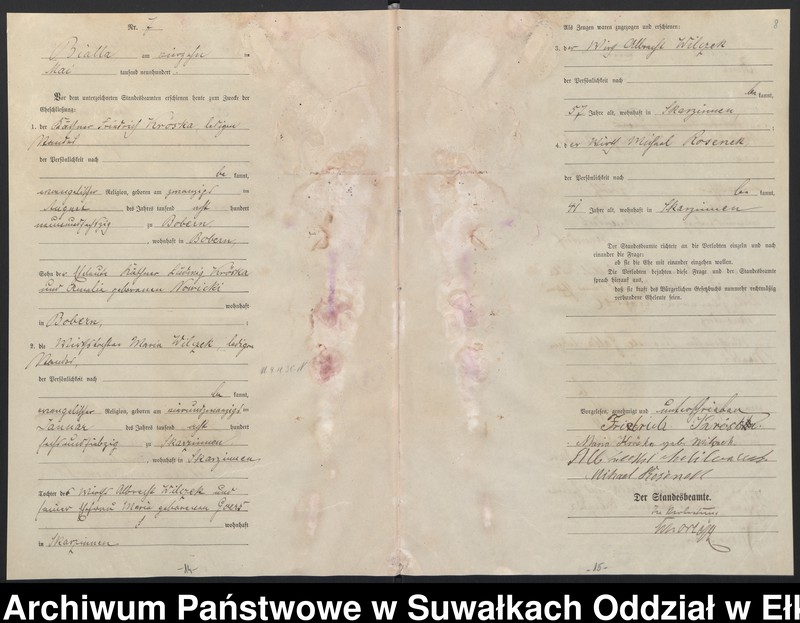 Nr. 7
Bialla am vierzehn ten
Mai tausend neunhundert
Vor dem unterzeichneten Standesbeamten erschienen heute zum Zwecke der
Eheschließung:
1. der Käthner Friedrich Kroska, ledigen
Standes
der Persönlichkeit nach
be kannt,
evangelischer Religion, geboren am zwanzigst ten
August des Jahres tausend acht hundert
neunundsechzig zu Bobern
, wohnhaft in Bobern,
Sohn des Käthner Ludwig Kroska
und Amalie geborenen Nowicki
wohnhaft
in Bobern, ;
2. die Wirthstochter Maria Wilczek, ledigen
Standes,
der Persönlichkeit nach
be kannt,
evangelischer Religion, geboren am vierundzwanzigst ten
Januar des Jahres tausend acht hundert
sechsundsiebzig zu Skarzinnen
, wohnhaft in Skarzinnen,
Tochter des Wirths Albrecht Wilczek und
seiner Ehefrau Maria geborenen
wohnhaft
in Skarzinnen
-14-
8
Als Zeugen waren zugezogen und erschienen:
3. der Wirth Albrecht Wilczek
der Persönlichkeit nach
be kannt,
57 Jahre alt, wohnhaft in Skarzinnen,
4. der Wirth Michael Rosenek
der Persönlichkeit nach
be kannt,
41 Jahre alt, wohnhaft in Skarzinnen
Der Standesbeamte richtete an die Verlobten einzeln und nach
einander die Frage:
ob sie die Ehe mit einander eingehen wollen.
Die Verlobten bejahten diese Frage und der Standesbeamte
sprach hierauf aus,
daß sie kraft des Bürgerlichen Gesetzbuchs nunmehr rechtmäßig
verbundene Eheleute seien.
Vorgelesen, genehmigt und unterschrieben
Maria geb. Wilczek
Michael Rosenek
Der Standesbeamte.
In Vertretung
-15-
Archiwum Państwowe w Suwałkach Oddział w Ełk